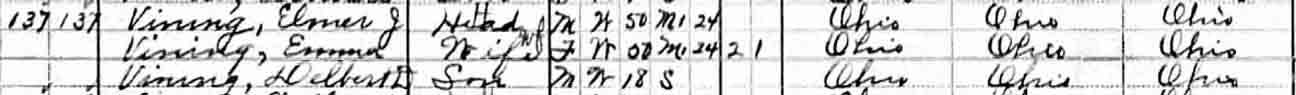 137 137 Vining, Elmer J Head M W 50 M1 24 Ohio Ohio Ohio
Vining, Emma Wife F W 50 M1 24 2 1 Ohio Ohio Ohio
Vining, Delbert D Son M W 18 S Ohio Ohio Ohio